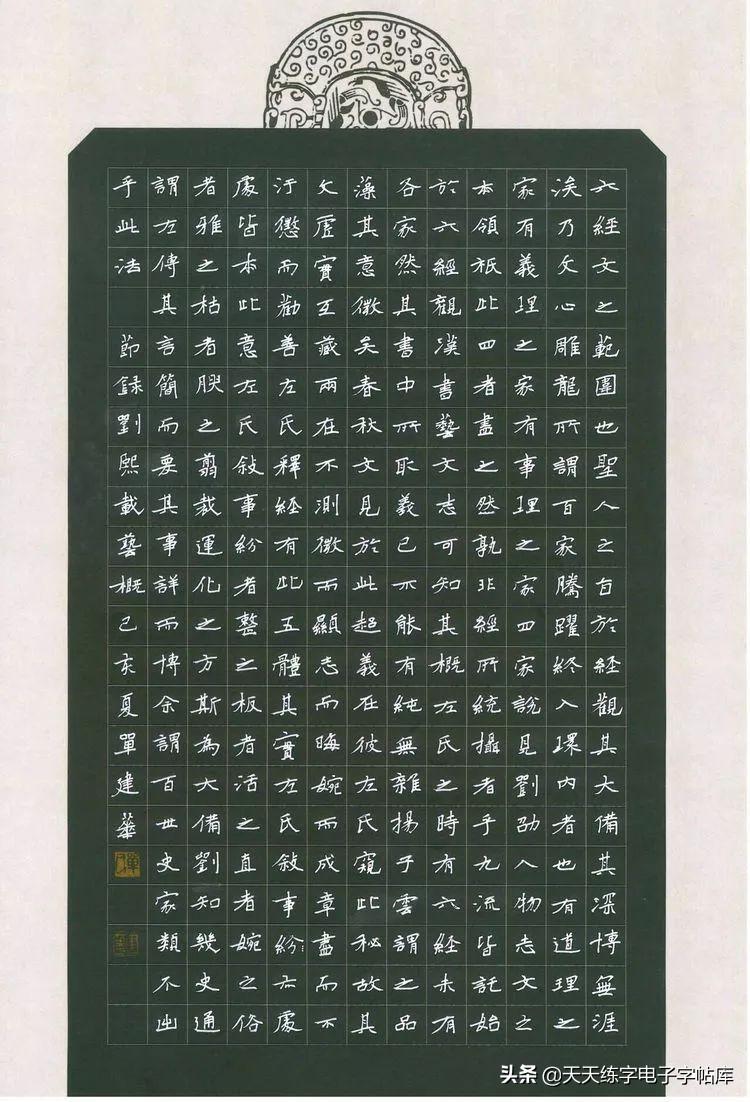 六經文之範圍也聖人之旨於經觀其大備其深博無涯
涘乃文心雕龍所謂百家騰躍終入環內者也有道理之
家有義理之家有事理之家四家說見劉劭人物志文之
本領祇此四者盡之然孰非經所統攝者乎九流皆託始
於六經觀漢書藝文志可知其概左氏之時有六經未有
各家然其書中所取義已不能有純無雜揚子雲謂之品
藻其意微矣春秋文見於此起義在彼左氏窺此秘故其
文虛實互藏兩在不測微而顯志而晦婉而成章盡而不
汙懲而勸善左氏釋經有此五體其實左氏敘事紛亦處
處皆本此意左氏敘事紛者整之板者活之直者婉之俗
者雅之枯者腴之翦裁運化之方斯為大備劉知幾史通
謂左傳其言簡而要其事詳而博余謂百世史家類不出
乎此法 節錄劉熙載藝概己亥夏單建華
头条 @天天练字电子字帖库